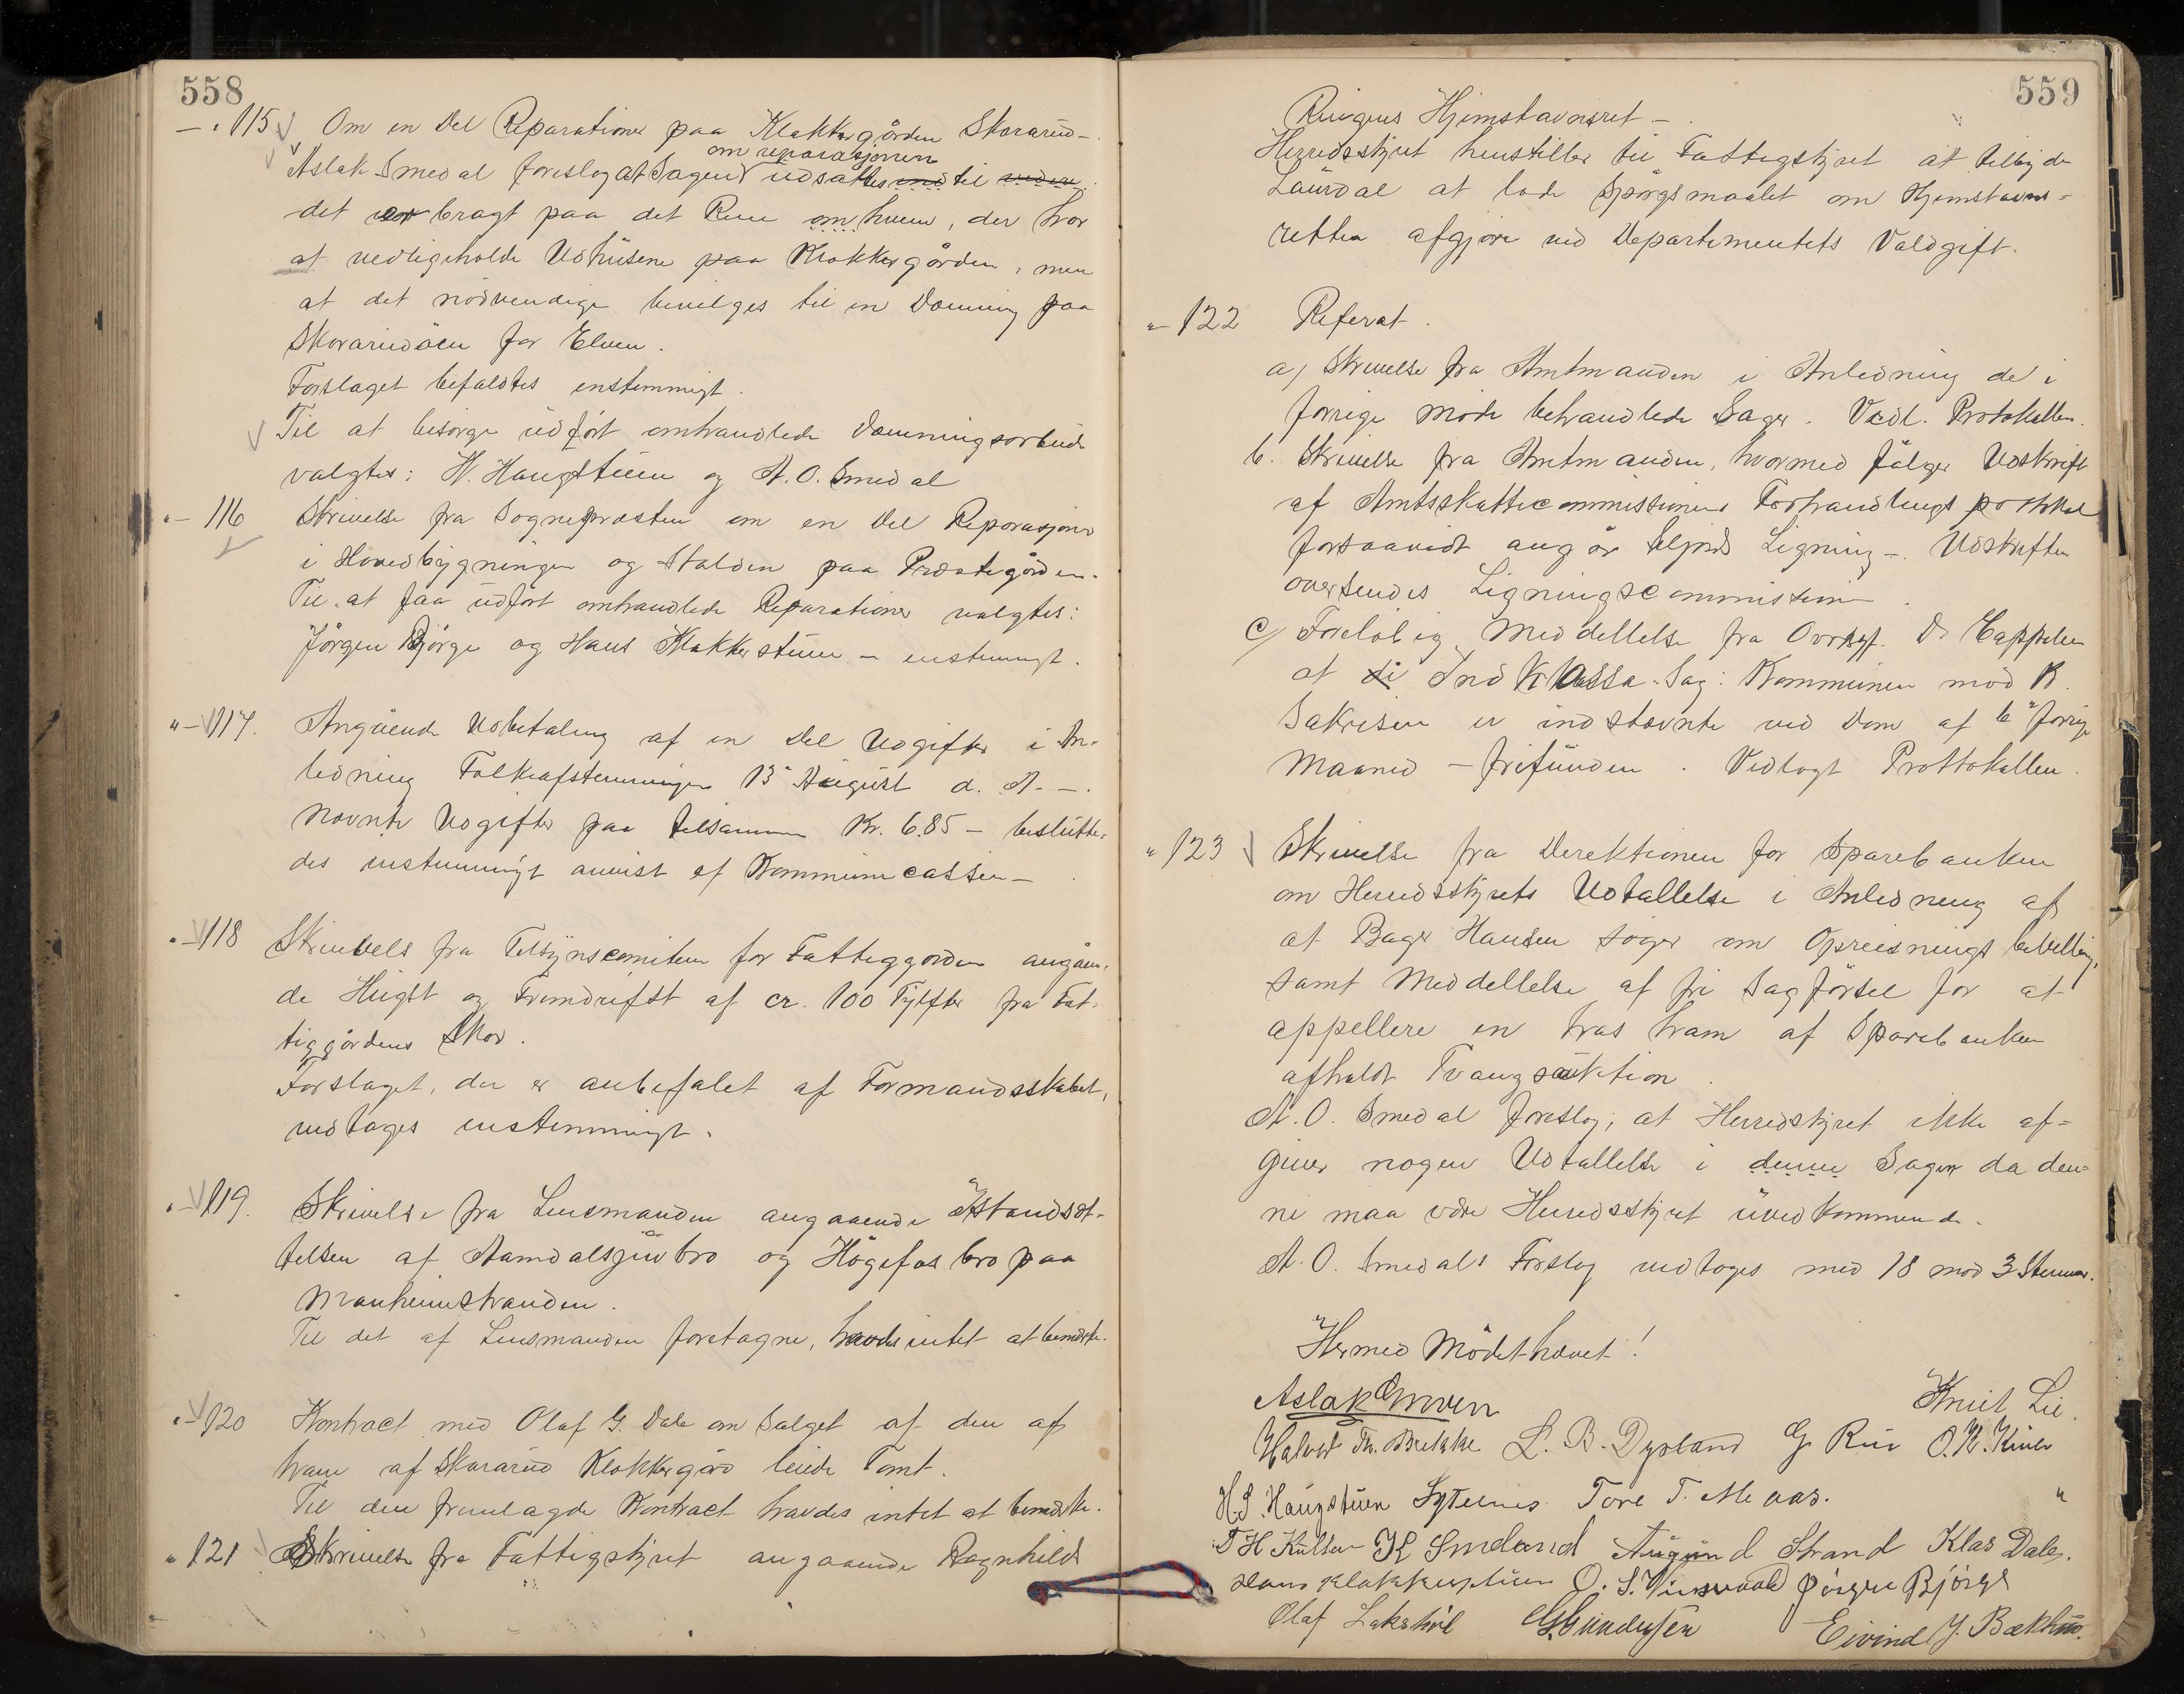 558
-"115 Om en Del Reparationer paa Klokkergården Skorarud-
om reparasjonen
Aslak Smedal foreslog at Sagen udsattes ind til videre
det var bragt paa det Rene om hvem, der har
at vedligeholde Udhusene paa Klokkergården, men
at det nødvendige bevilges til en Dæmning paa
Skorarudøen for Elven.
Forslaget bifaldtes enstemmigt.
Til at besørge udført omhandlede Dæmningsarbeide
valgtes: H. Haugstuen og A. O. Smedal
"- 116 Skrivelse fra Sognepræsten om en Del Reparasjoner
i Hovedbygningen og Stalden paa Præstegården.
Til at faa udført omhandlede Reparationer valgtes:
Jørgen Bjørge og Hans Klokkerstuen - enstemmigt.
"- 117. Angående Udbetaling af en Del Udgifter i An-
ledning Folkeafstemningen 13 August d. A. -.
Nævnte Udgifter paa tilsammen Kr. 6.85 - beslutte-
des enstemmigt anvist af Kommunecassen -
"- 118 Skrivels fra Tilsynscomiteen for Fattiggården angåen-
de Hugst og Fremdrift af cr. 100 Tylfter fra Fat-
tiggårdens Skov.
Forslaget, der er anbefalet af Formandsskabet,
vedtages enstemmigt.
"- 119. Skrivelse fra Lensmanden angaaende Istandsæt-
telsen af Aamdalsgjuv bro og Høgefos bro paa
Manheimstranden.
Til det af Lensmanden foretagne, havdes intet at bemærke.
"- 120 Kontract med Olaf G. Dale om Salget af den af
ham af Skorarud Klokkergård leiede Tomt.
Til den fremlagde Kontract havdes intet at bemærke.
" 121 Skrivelse fra Fattigstyret angaaende Ragnhild
559
Ringens Hjemstavnsret -
Herredsstyret henstiller til Fattigstyret at tilbyde
Laurdal at lade Spørgsmaalet om Hjemstavns-
retten afgjøre ved Departementets Voldgift.
"- 122 Referat.
a) Skrivelse fra Amtmanden i Anledning de i
forrige Møde behandlede Sager. Vedl. Protokollen.
b. Skrivelse fra Amtmanden, hvormed følger Udskrift
af Amtsskattecommissionens Forhandlingsprotokol
forsaavidt angår Seljords Ligning -. Udskriften
oversendes Ligningscommissionen.
c) Foreløbig Meddellelse fra Ovrsagf. D. Cappelen
at i Indkassa-Sag: Kommunen mod K.
Sakrisen er indstævnte ved Dom af 6 forrige
Maaned - frifunden. Vedlagt Prottokollen.
" 123 Skrivelse fra Direktionen for Sparebanken
om Herredsstyrets Udtallelse i Anledning af
at Bager Hansen søger om Opreisnings bevilling,
samt Meddellelse af fri Sagførsel for at
appellere en hos ham af Sparebanken
afholdt Tvangsauktion.
A. O. Smedal foreslog, at Herredstyret ikke af-
giver nogen Udtallelse i denne Sagen da den-
ne maa være Herredsstyret uvedkommende.
A. O. Smedals Forslag vedtoges med 18 mod 3 Stemmer.
Hermed Mødet hævet!
Aslak Knut Lie.
Halvor Th. Brekke L. B. Dyrland G Rui O. K.
H. S. Haugstuen Tore T.
T H Kulten K Smeland Augund Strand Klas Dale.
Hans Klokkerstuen O. S. Jørgen Bjørge
Olaf Gundersen Eivind J. Bækhus.